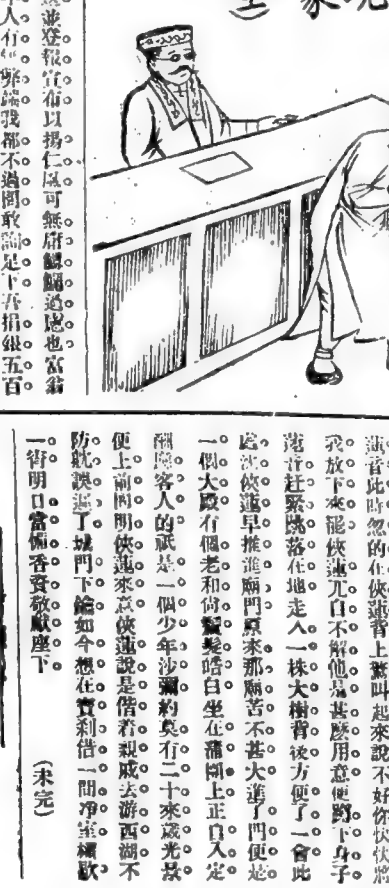 並登報宣布以揚仁風可無庸鰓鰓過慮也富翁
人有 弊端我都不過問敢請足下再捐銀五百
蓮官此時忽的在俠蓮背上驚叫起來說不好你快快將
我放下來罷俠蓮兀自不解他是甚麼用意便蹲下身子
蓮官趕緊跳落在地走入一株大樹背後方便了一會此
處 俠蓮早推進廟門原來那廟苦不甚大進了門便是
一個大殿有個老和尙鬚髮皓白坐在蒲團上正自入定
酬應客人的祇是一個少年沙彌約莫有二十來歲光景
便上前問明俠蓮來意俠蓮說是偕着親戚去游西湖不
防就誤遲了城門下鑰如今想在寶刹借一間净室權歇
一宵明日當備香資敬獻座下
(未完)